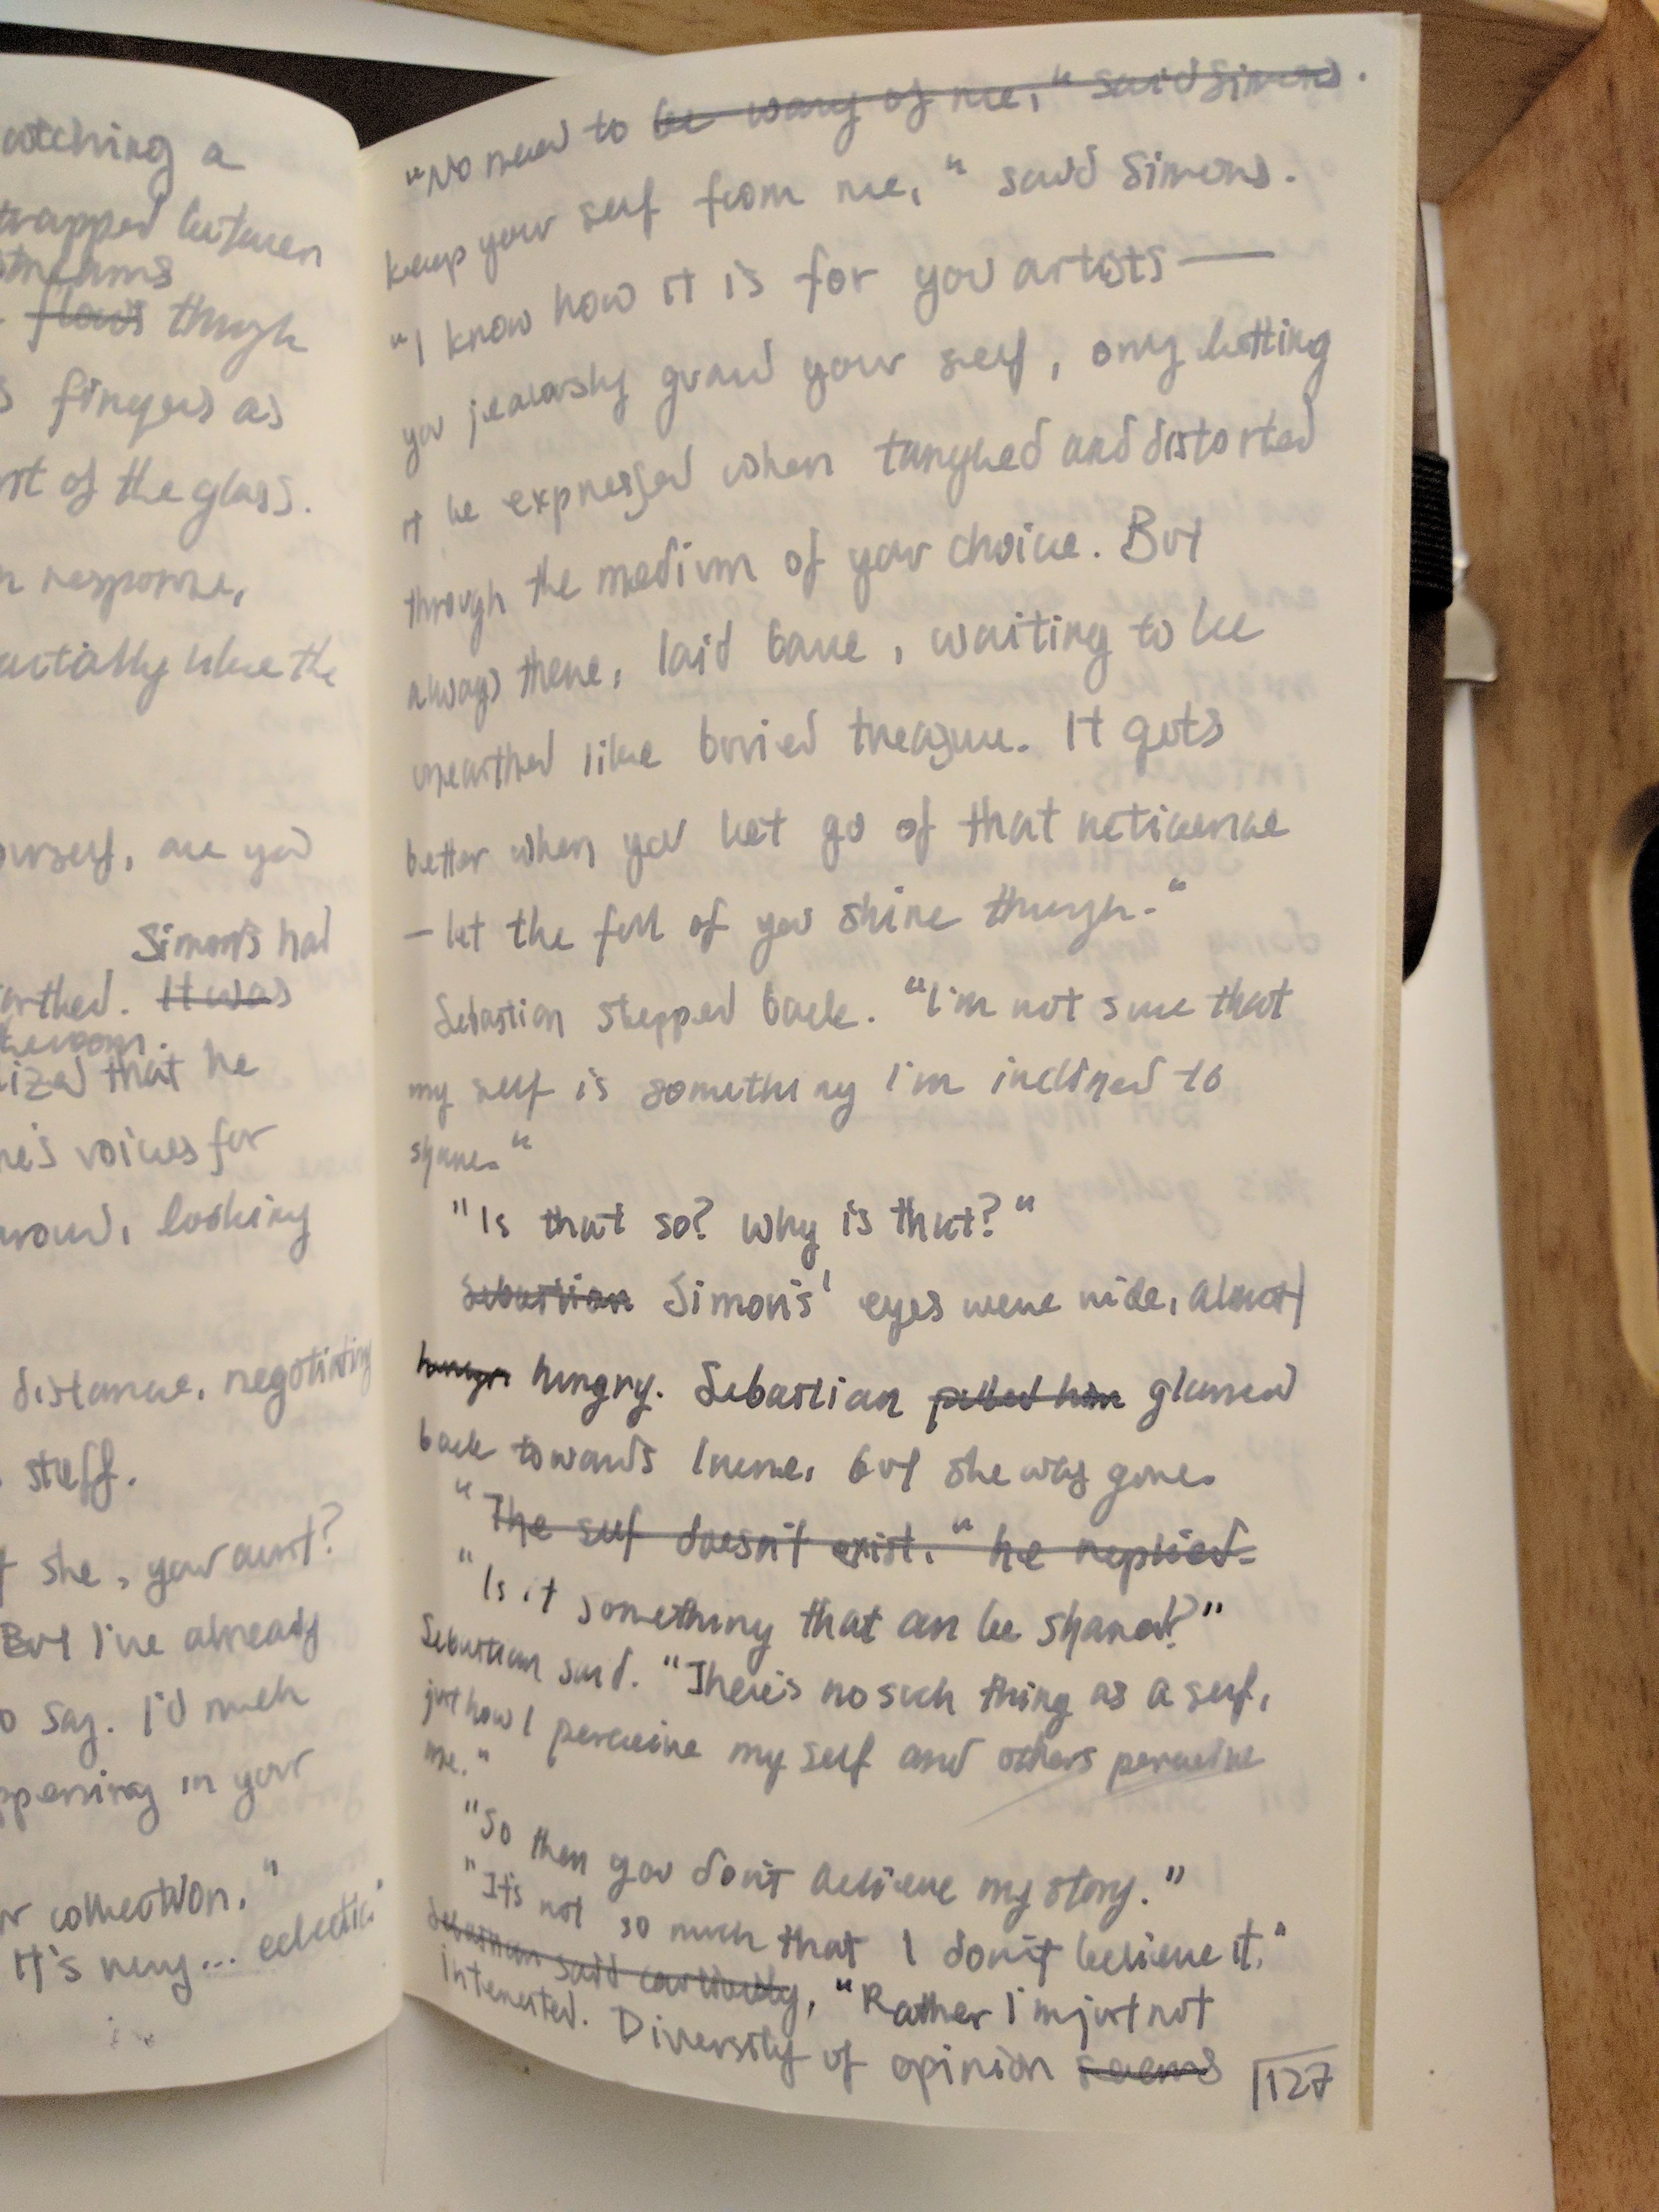 atching a
trapped between
streams
flows through
s fingers as
rt of the glass.
n response,
actably like the
ourself, are you
Simons had
arthed. It was
the room.
ized that he
ne's voices for
around, looking
distance, negotiating
stuff.
t she, your aunt?
But I've already
o say. I'd much
ppening in your
r collection."
It's very... eclectic."
"No need to be wary of me," said Simons.
keep your self from me," said Simons.
"I know how it is for you artists—
you jealously guard your self, only letting
it be expressed when tangled and distorted
through the medium of your choice. But
always there, laid bare, waiting to be
unearthed like buried treasure. It gets
better when you let go of that reticence
— let the full of you shine through."
Sebastian stepped back. "I'm not sure that
my self is something I'm inclined to
share."
"Is that so? Why is that?"
Sebastian Simons' eyes were wide, almost
hungr hungry. Sebastian pulled him glanced
back towards Irene, but she was gone.
"The self doesn't exist." he replied.
"Is it something that can be shared?"
Sebastian said. "There's no such thing as a self,
just how I perceive my self and others perceive
me."
"So then you don't believe my story."
"It's not so much that I don't believe it."
Sebastian said cautiously, "Rather I'm just not
interested. Diversity of opinion seems
127